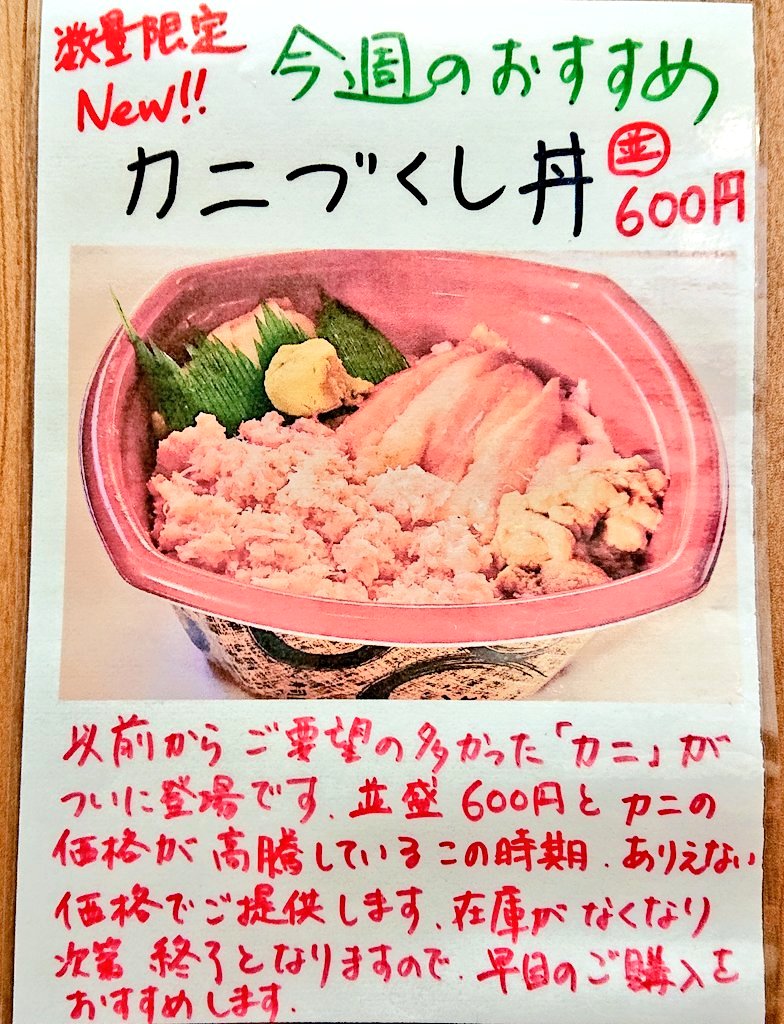 数量限定
New!!
今週のおすすめ
カニづくし丼
並
600円
以前からご要望の多かった「カニ」が
ついに登場です、並盛 600円とカニの
価格が高騰しているこの時期、ありえない
価格でご提供します、在庫がなくなり
次第 終了となりますので、早目のご購入を
おすすめします.